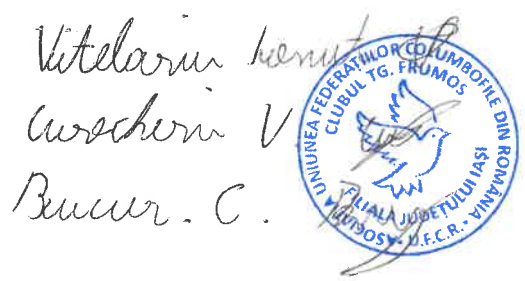 Vitelariu Ionuț
V.
Bucur. C.
ASOCIAȚIA UNIUNEA FEDERAȚIILOR COLUMBOFILE DIN ROMÂNIA
CLUBUL TG. FRUMOS
FILIALA JUDEȚULUI IAȘI
U.F.C.R.